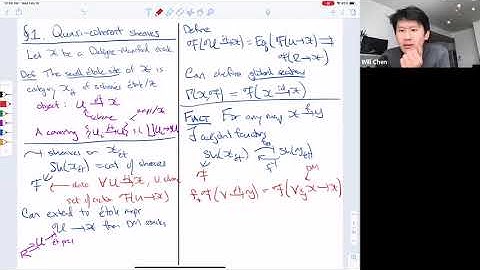 §1. Quasi-coherent sheaves
Let X be a Deligne-Mumford stack
Def The small étale site of X is
category X_ét of schemes étale/X
object: U ét→ X
scheme
maps/X
A covering {U_i ét→ U} if ∐U_i →> U
⇝ sheaves on X_ét
Sh(X_ét) = cat of sheaves
F ← data ∀ U ét→ X, U scheme
set of sections F(U→X)
Can extend to étale maps
𝒰 → X from DM stacks
R ⇉ U → ét pres
Define
F(𝒰 ét→ X) = Eq(F(U→X) ⇉
F(R→X))
Can define global sections
Γ(X, F) = F(X id→ X)
FACT For any map X f→ Y
∃ adjoint functors
Sh(X_ét) f_* ⇄ f^-1 Sh(Y_ét)
F
DM
f_*F(V ét→ Y) = F(V ×_Y X → X)
Will Chen